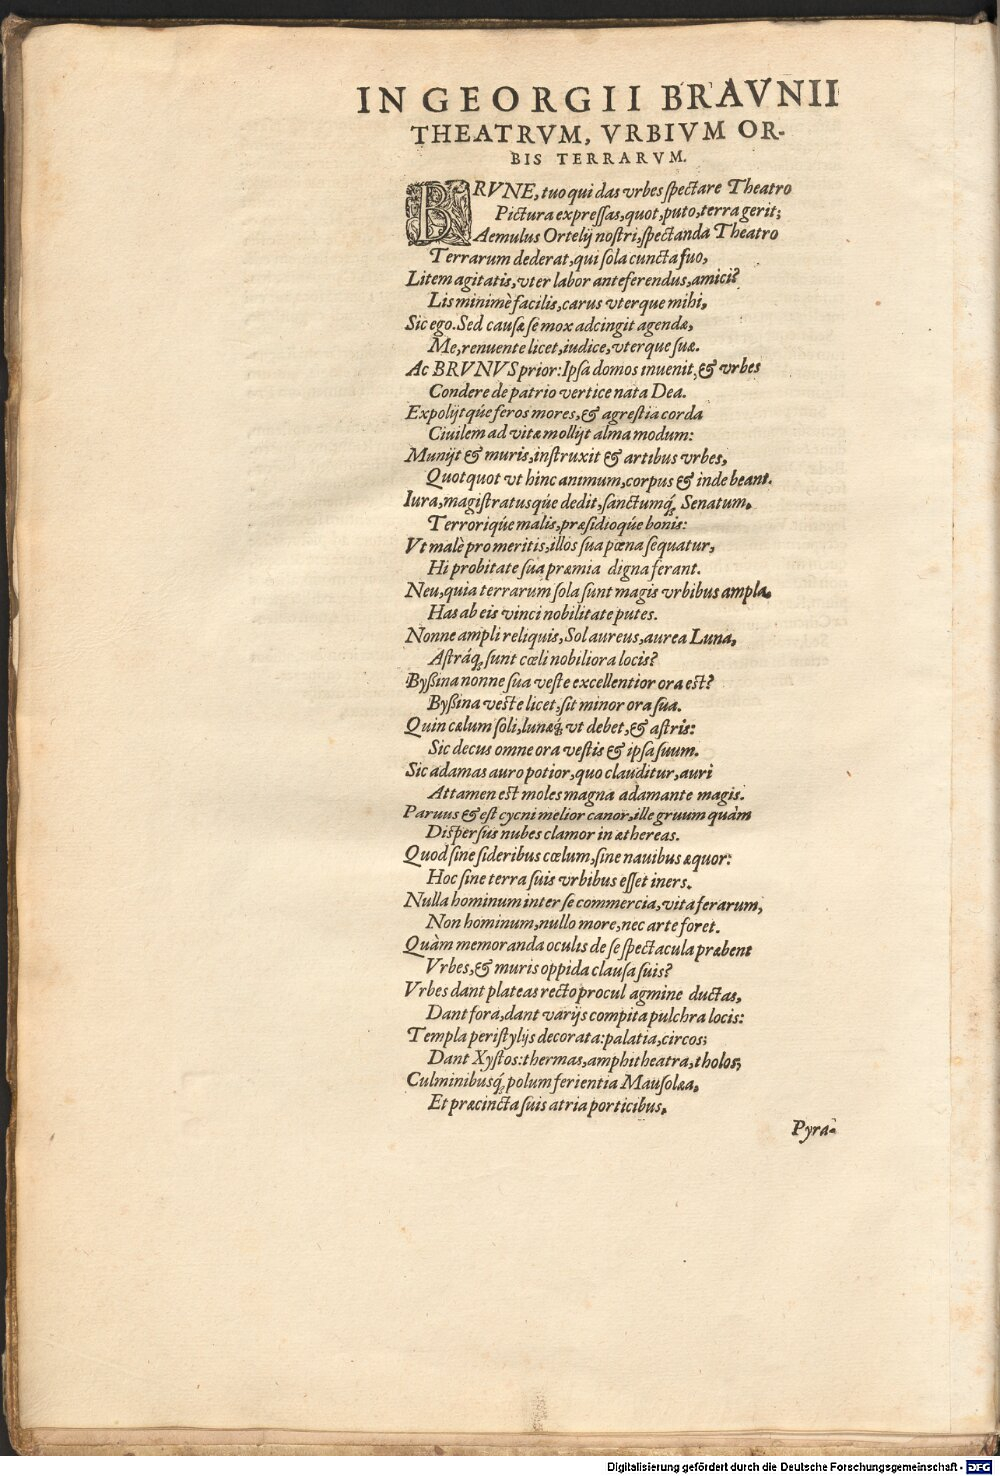 IN GEORGII BRAVNII
THEATRVM, VRBIVM OR-
BIS TERRARVM.
BRVNE, tuo qui das vrbes spectare Theatro
Pictura expressas, quot, puto, terra gerit;
Aemulus Ortelij nostri, spectanda Theatro
Terrarum dederat, qui sola cuncta suo,
Litem agitatis, vter labor anteferendus, amici?
Lis minimè facilis, carus vterque mihi,
Sic ego. Sed causæ se mox adcingit agendæ,
Me, renuente licet, iudice, vterque suæ.
Ac BRVNVS prior: Ipsa domos inuenit, & vrbes
Condere de patrio vertice nata Dea.
Expolijtqúe feros mores, & agrestia corda
Ciuilem ad vitæ mollijt alma modum:
Munijt & muris, instruxit & artibus vrbes,
Quotquot vt hinc animum, corpus & inde beant.
Iura, magistratusqúe dedit, sanctumq́; Senatum,
Terroriqúe malis, præsidioqúe bonis:
Vt malè pro meritis, illos sua pœna sequatur,
Hi probitate sua præmia digna ferant.
Neu, quia terrarum sola sunt magis vrbibus ampla,
Has ab eis vinci nobilitate putes.
Nonne ampli reliquis, Sol aureus, aurea Luna,
Astráq; sunt cœli nobiliora locis?
Byßina nonne sua veste excellentior ora est?
Byßina veste licet, sit minor ora sua.
Quin cælum soli, lunæq́; vt debet, & astris:
Sic decus omne ora vestis & ipsa suum.
Sic adamas auro potior, quo clauditur, auri
Attamen est moles magna adamante magis.
Paruus & est cycni melior canor, ille gruum quàm
Dispersus nubes clamor in æthereas.
Quod sine sideribus cœlum, sine nauibus æquor:
Hoc sine terra suis vrbibus esset iners.
Nulla hominum inter se commercia, vita ferarum,
Non hominum, nullo more, nec arte foret.
Quàm memoranda oculis de se spectacula præbent
Vrbes, & muris oppida clausa suis?
Vrbes dant plateas recto procul agmine ductas,
Dant fora, dant varijs compita pulchra locis:
Templa peristylijs decorata: palatia, circos;
Dant Xystos: thermas, amphitheatra, tholos;
Culminibusq́; polum ferientia Mausolæa,
Et præcincta suis atria porticibus,
Pyra-
Digitalisierung gefördert durch die Deutsche Forschungsgemeinschaft - DFG